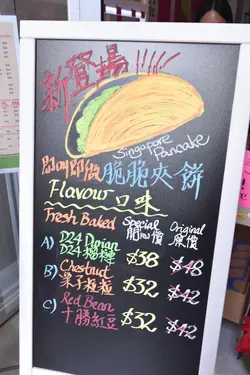 新登場
Singapore
Pancake
即叫即做 脆脆夾餅
Flavour 口味
Fresh Baked Special 開心價 Original 原價
A) D24 Durian
D24 榴槤 $38 $48
B) Chestnut
栗子粒粒 $32 $42
C) Red Bean
十勝紅豆 $32 $42